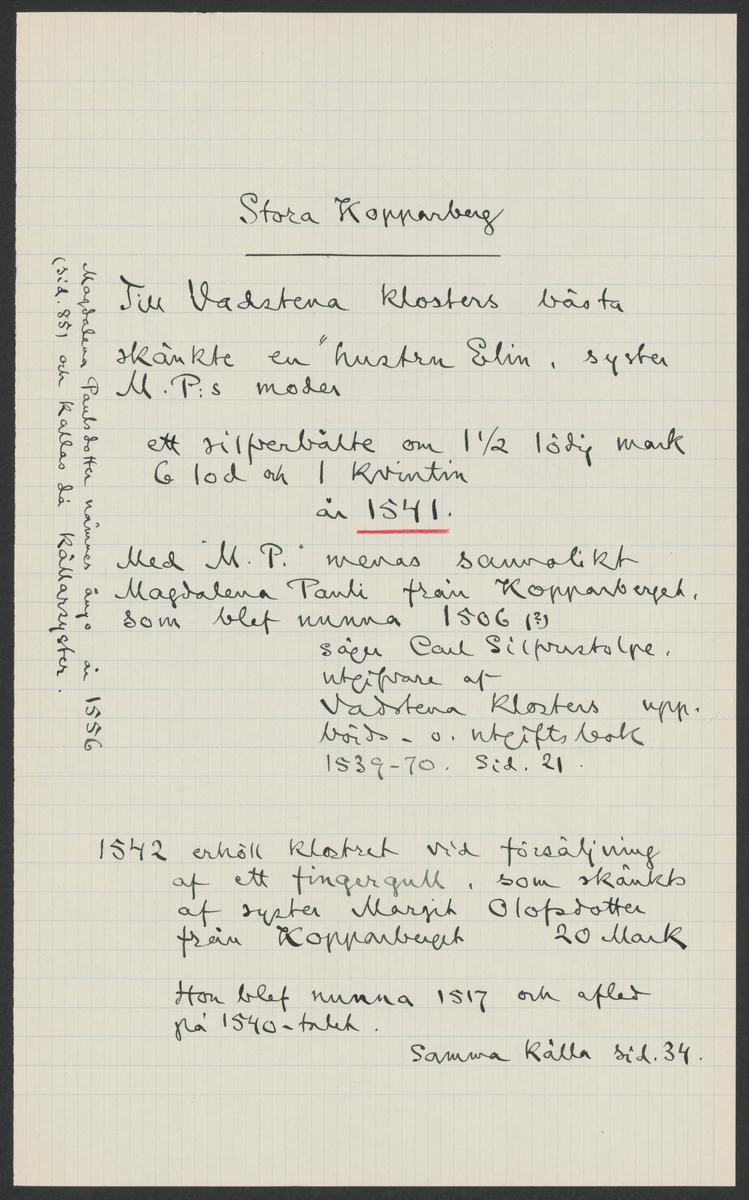 Stora Kopparberg
Till Vadstena klosters bästa
skänkte en "hustru Elin, syster
M. P:s moder
ett silfverbälte om 1 1/2 lödig mark
6 lod och 1 kvintin
år 1541.
Med "M. P." menas sannolikt
Magdalena Pauli från Kopparberget,
som blef nunna 1506 (?)
säger Carl Silfverstolpe,
utgifvare af
Vadstena klosters upp-
börds- o. utgiftsbok
1539-70. Sid. 21.
1542 erhöll klostret vid försäljning
af ett fingergull, som skänkts
af syster Margit Olofsdotter
från Kopparberget 20 Mark
Hon blef nunna 1517 och afled
på 1540-talet.
Samma källa sid. 34.
Magdalena Paulsdotter nämnes ännu år 1556
(sid. 85) och kallas då källarsyster.